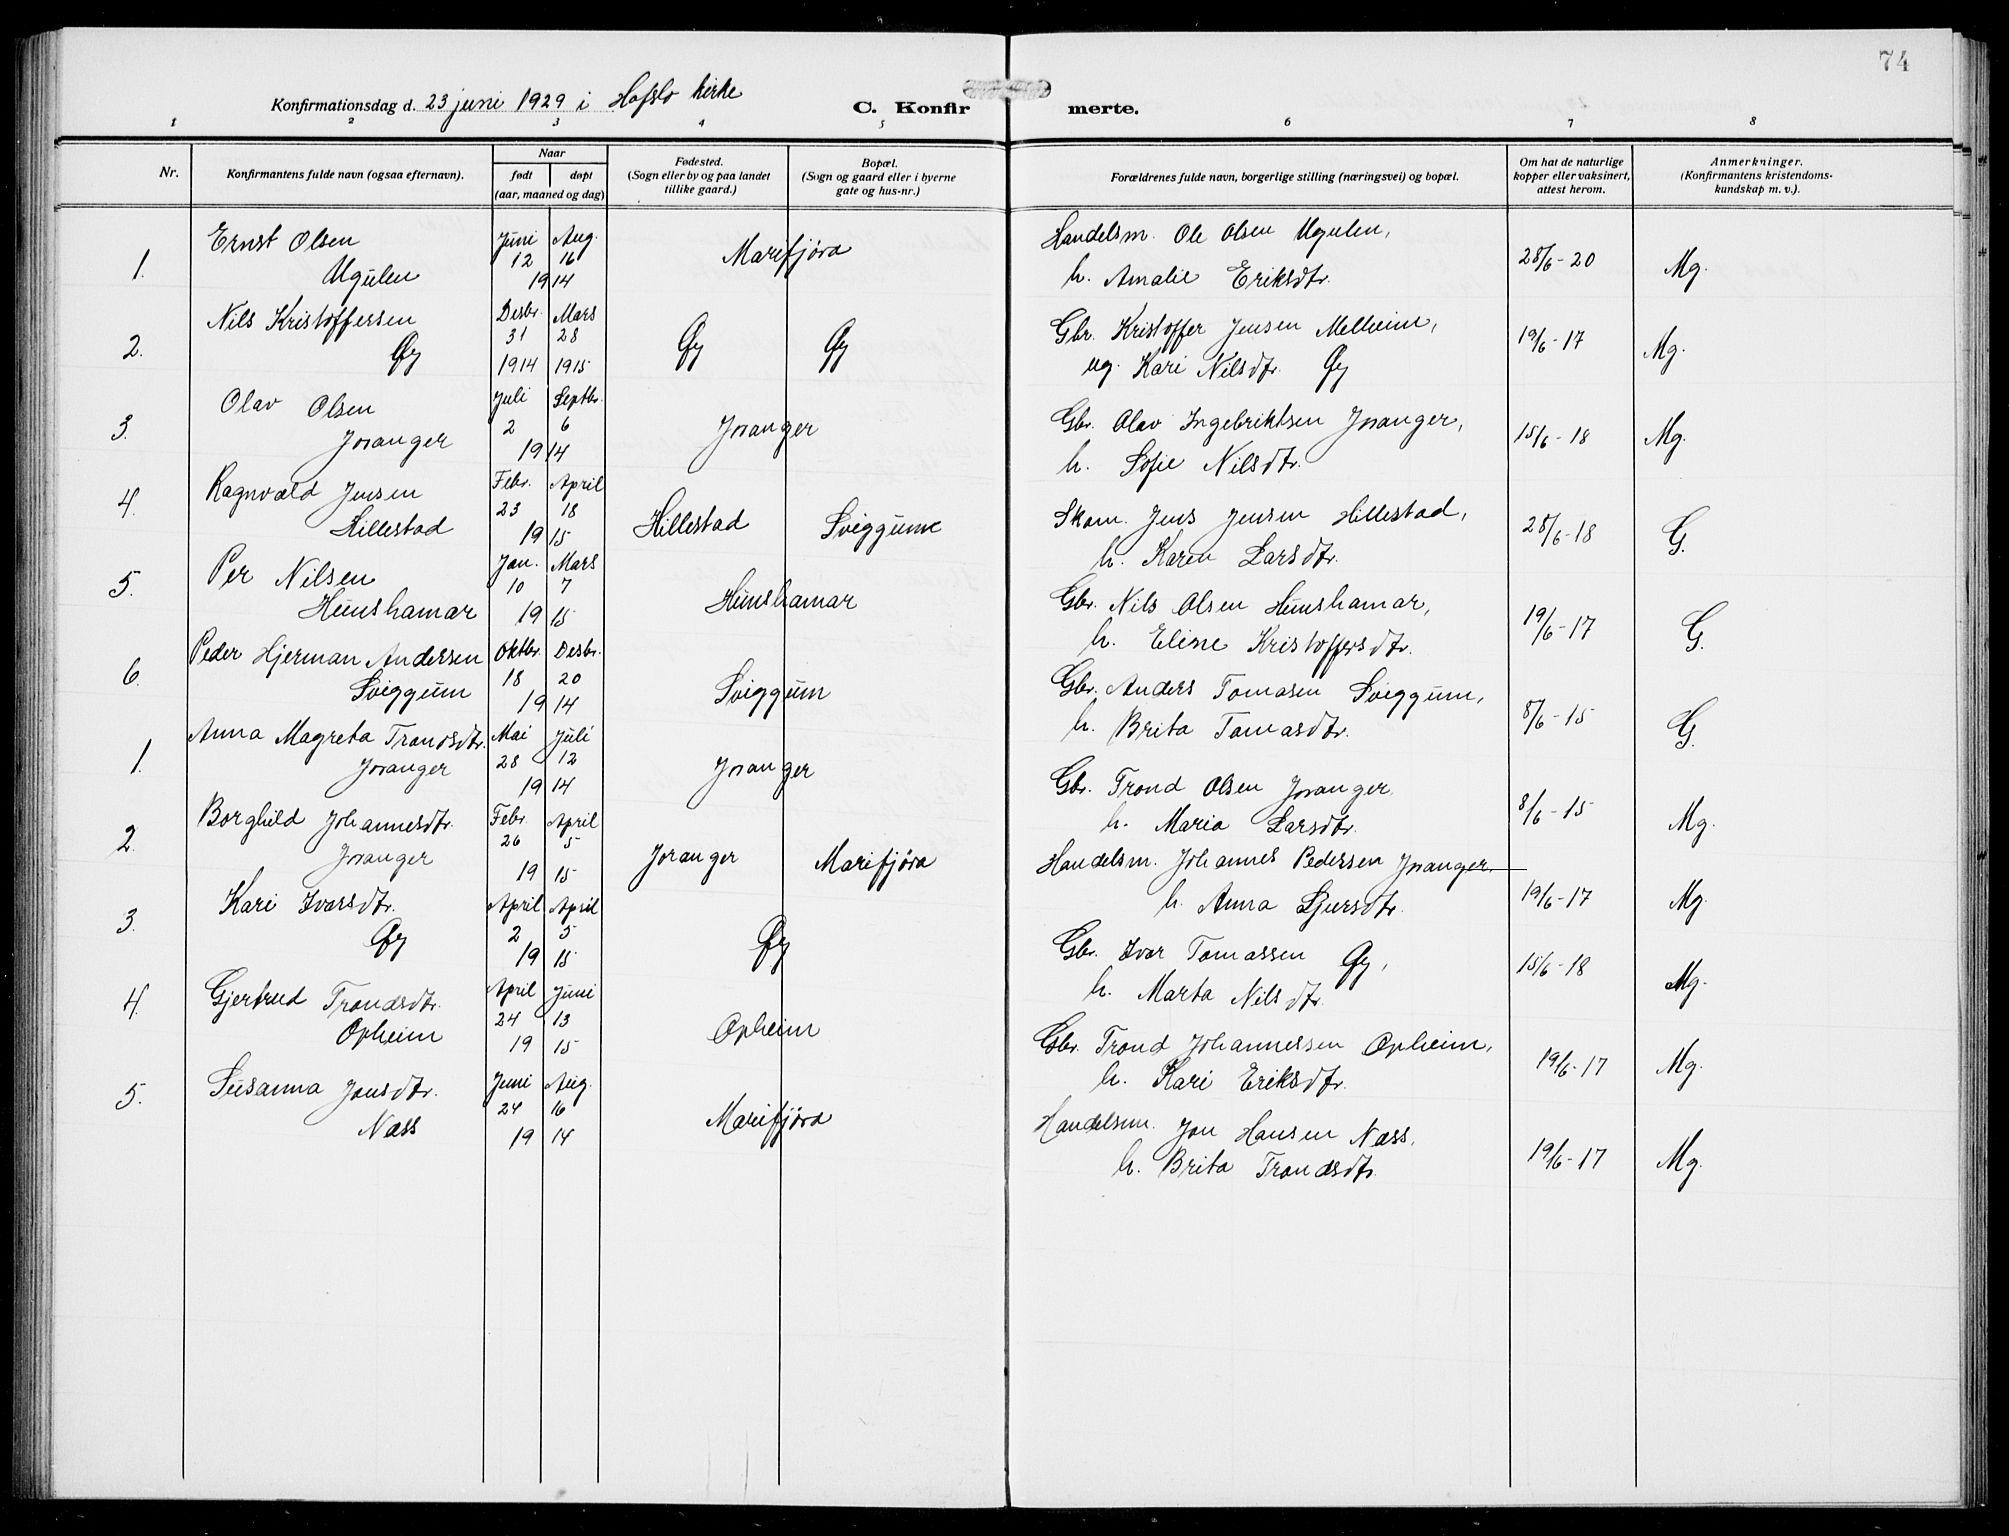 74
Konfirmationsdag d. 23 juni 1929 i Hafslo kirke
C. Konfirmerte.
1 2 3 4 5 6 7 8
Nr.
Konfirmantens fulde navn (ogsaa efternavn).
Naar
født døpt
(aar, maaned og dag)
Fødested.
(Sogn eller by og paa landet
tillike gaard.)
Bopæl.
(Sogn og gaard eller i byerne
gate og hus-nr.)
Forældrenes fulde navn, borgerlige stilling (næringsvei) og bopæl.
Om hat de naturlige
kopper eller vaksinert,
attest herom.
Anmerkninger.
(Konfirmantens kristendoms-
kundskap m. v.).
Ernst Olsen Juni Aug. Handelsm. Ole Olsen Ugulen,
1. Ugulen 12 16 1914 Marifjøra h. Amalie Eriksdtr. 28/6-20 Mg.
Nils Kristoffersen Desbr. Mars Gbr. Kristoffer Jensen Melheim,
2. Øy 31 28 1914 1915 Øy Øy ug. Kari Nilsdtr. Øy 19/6-17 Mg.
Olav Olsen Juli Septbr. Gbr. Olav Ingebriktsen Joranger,
3. Joranger 2 6 1914 Joranger h. Sofie Nilsdtr. 15/6-18 Mg.
Ragnvald Jensen Febr. April Skom. Jens Jensen Hillestad,
4. Hillestad 23 18 1915 Hillestad Sviggum h. Karen Larsdtr. 28/6-18 G.
Per Nilsen Jan. Mars Gbr. Nils Olsen Hunshamar,
5. Hunshamar 10 7 1915 Hunshamar h. Eline Kristoffersdtr. 19/6-17 G.
Peder Hjerman Andersen Oktbr. Desbr. Gbr. Anders Tomasen Sviggum,
6. Sviggum 18 20 1914 Sviggum h. Brita Tomasdtr. 8/6-15 G.
Anna Magreta Trondsdtr. Mai Juli Gbr. Trond Olsen Joranger
1. Joranger 28 12 1914 Joranger h. Maria Larsdtr. 8/6-15 Mg.
Borghild Johannesdtr. Febr. April Handelsm. Johannes Pedersen Joranger.
2. Joranger 26 5 1915 Joranger Marifjøra h. Anna Sjursdtr. 19/6-17 Mg.
Kari Ivarsdtr. April April Gbr. Ivar Tomassen Øy,
3. Øy 2 5 1915 Øy h. Marta Nilsdtr. 15/6-18 Mg.
Gjertrud Trondsdtr. April Juni Gbr. Trond Johannessen Opheim,
4. Opheim 24 13 1915 Opheim h. Kari Eriksdtr. 19/6-17 Mg.
Susanna Jonsdtr. Juni Aug. Handelsm. Jon Hansen Næss,
5. Næss 24 16 1914 Marifjøra h. Brita Trondsdtr. 19/6-17 Mg.